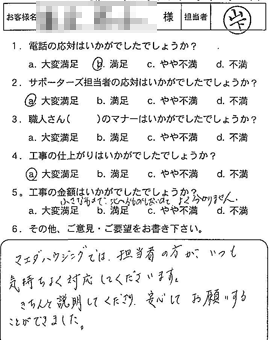 お客様名 様 担当者 山下
1．電話の応対はいかがでしたでしょうか？
a. 大変満足 b. 満足 c. やや不満 d. 不満
2．サポーターズ担当者の応対はいかがでしたでしょうか？
a. 大変満足 b. 満足 c. やや不満 d. 不満
3．職人さん（ ）のマナーはいかがでしたでしょうか？
a. 大変満足 b. 満足 c. やや不満 d. 不満
4．工事の仕上がりはいかがでしたでしょうか？
a. 大変満足 b. 満足 c. やや不満 d. 不満
5．工事の金額はいかがでしたでしょうか？
よく分りません。
a. 大変満足 b. 満足 c. やや不満 d. 不満
6．その他、ご意見・ご要望をお書き下さい。
マエダハウジングでは、担当者の方が、いつも
気持ちよく対応してくださいます。
きちんと説明してくださり、安心してお願いする
ことができました。